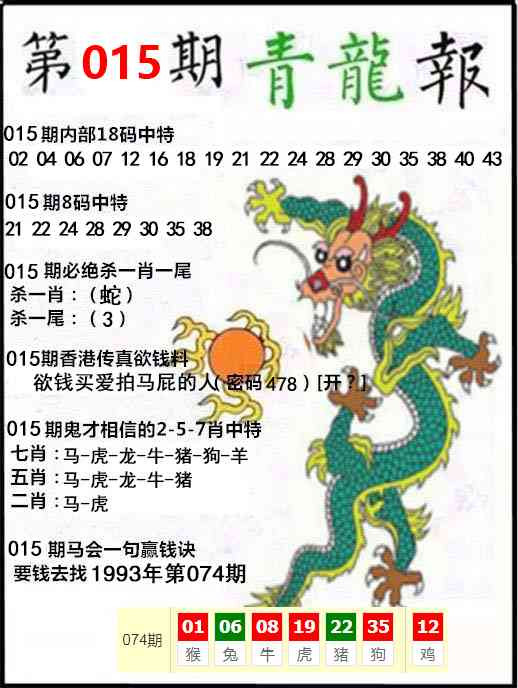 第015期青龍報
015期内部18码中特
02 04 06 07 12 16 18 19 21 22 24 28 29 30 35 38 40 43
015期8码中特
21 22 24 28 29 30 35 38
015 期必绝杀一肖一尾
杀一肖：（蛇）
杀一尾：（3）
015期香港传真欲钱料
欲钱买爱拍马屁的人(密码478）[开？]
015期鬼才相信的2-5-7肖中特
七肖：马-虎-龙-牛-猪-狗-羊
五肖：马-虎-龙-牛-猪
二肖：马-虎
015 期马会一句赢钱诀
要钱去找1993年第074期
074期 01 06 08 19 22 35 12
猴 兔 牛 虎 猪 狗 鸡